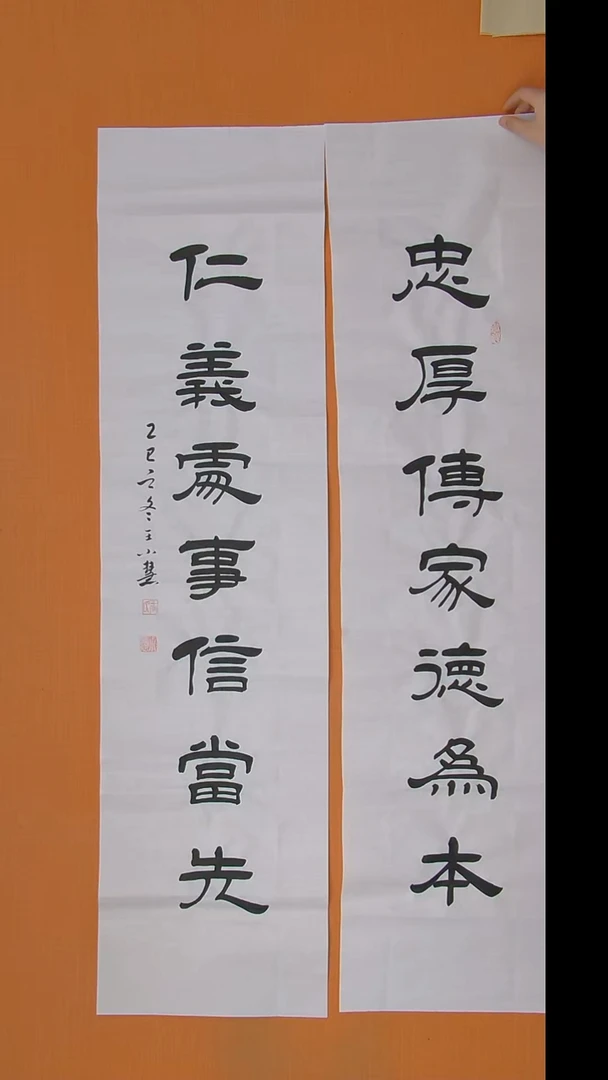 忠厚傳家德為本
仁義處事信當先
乙巳立冬王小慧